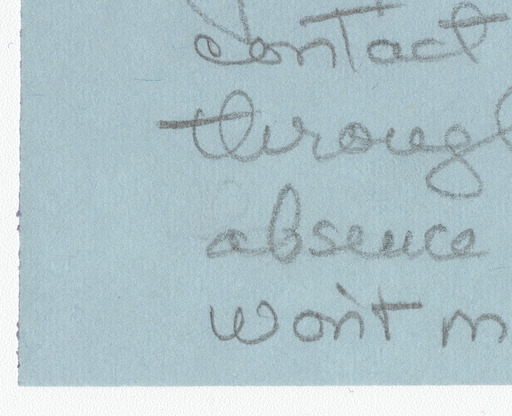 contact
through
absence
won't m